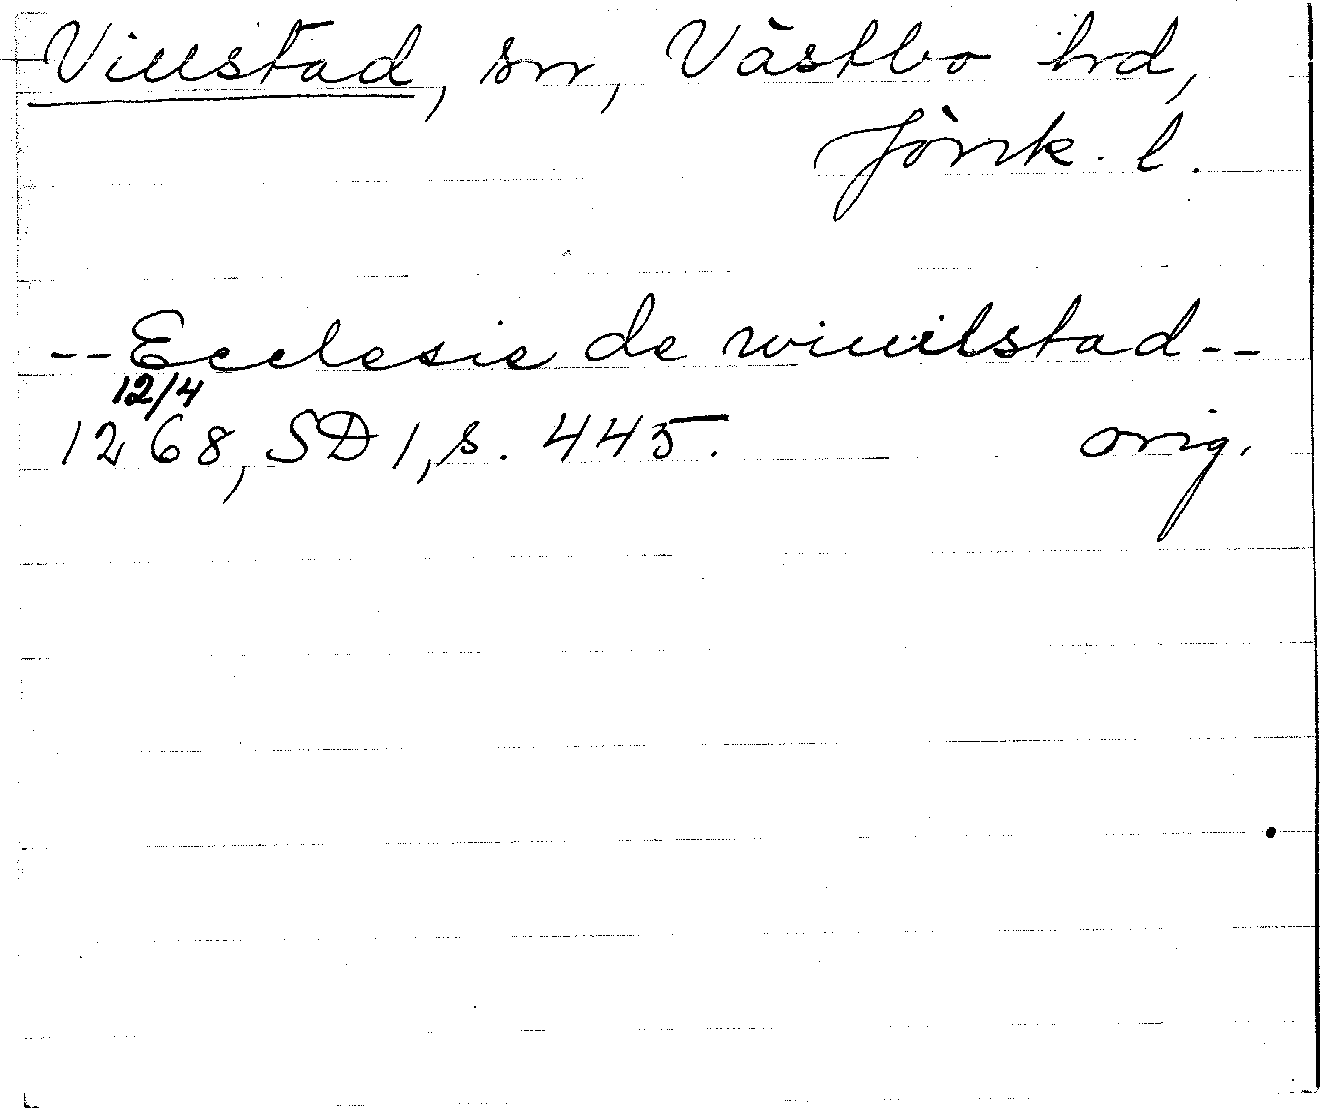 Villstad, sn, Västbo hd,
Jönk. l.
--Ecclesie de wiuilstad--
12/4
1268, SD 1, s. 445. orig.